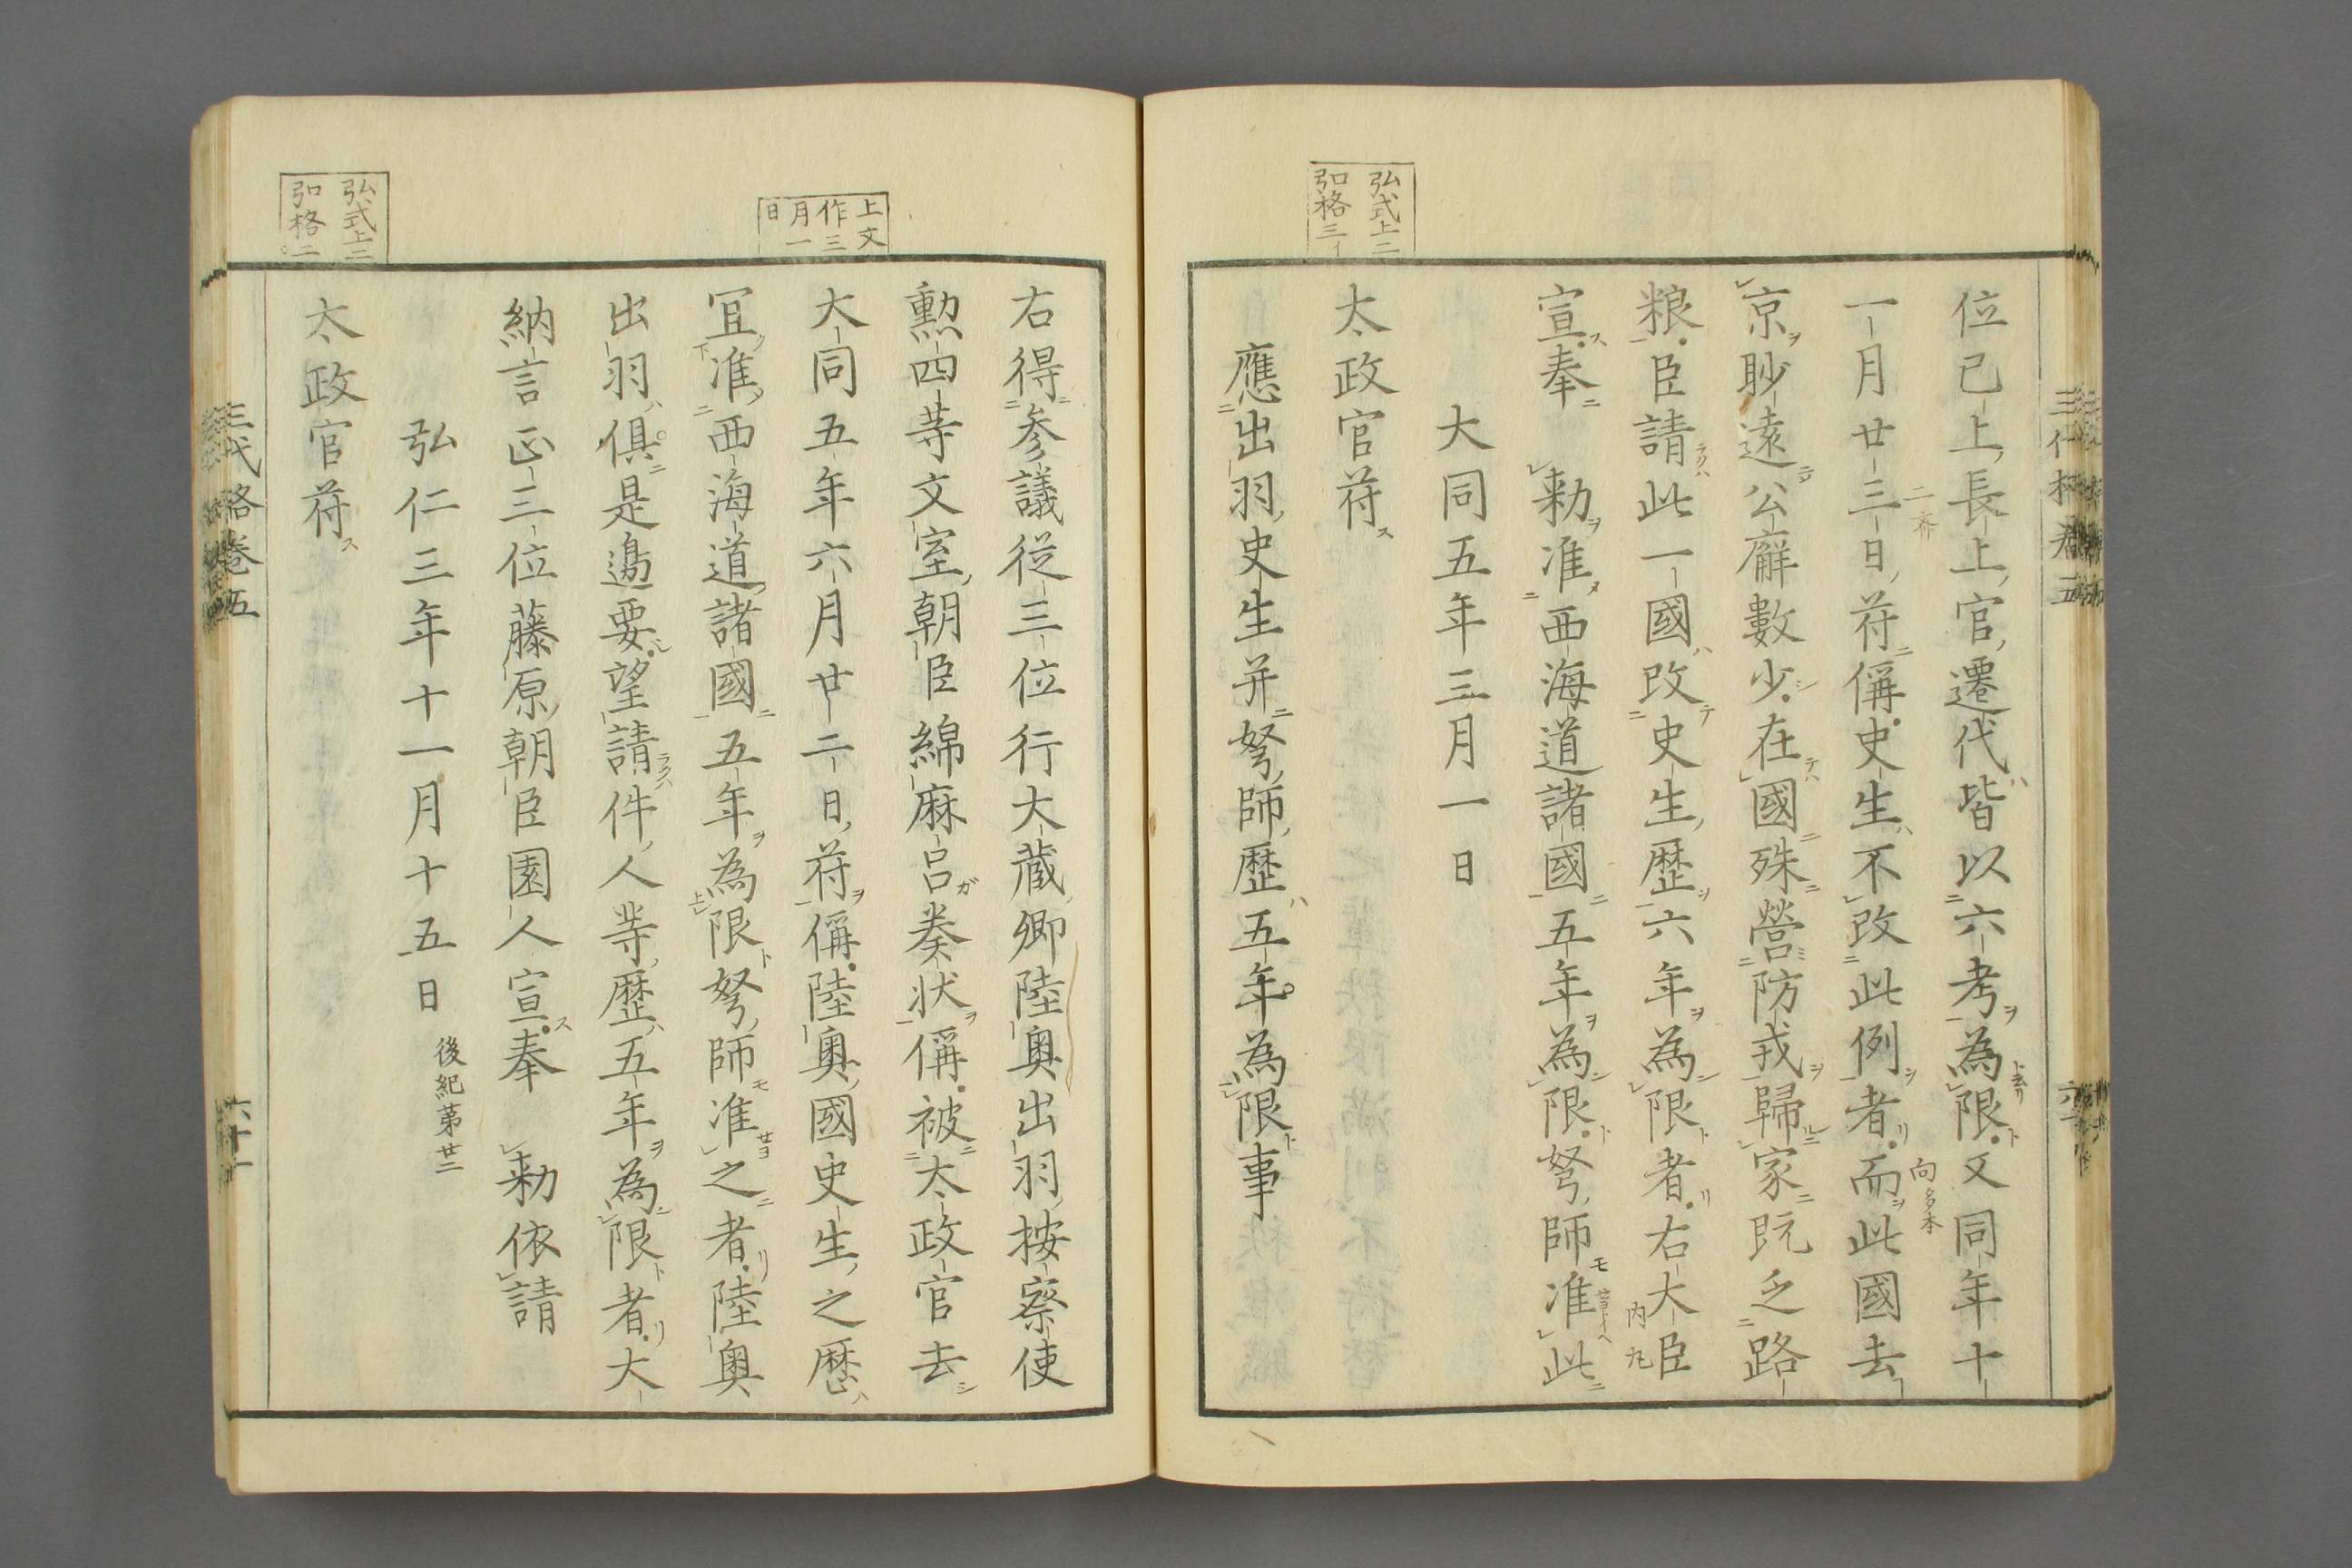 弘式上二
弘格三
位已上長上官遷代皆以六考為限又同年十
一月廿三日符偁史生不改此例者而此國去
京眇遠公廨數少在國殊營防戎歸家既乏路
粮臣請此一國改史生歷六年為限者右大臣
宣奉　勅准西海道諸國五年為限弩師准此
大同五年三月一日
太政官符
應出羽史生并弩師歷五年為限事
向多本
上文
作三
月一
日
弘式上二
弘格二
右得參議從三位行大藏卿陸奧出羽按察使
勲四等文室朝臣綿麻呂奏狀偁被太政官去
大同五年六月廿二日符偁陸奧國史生之歷
宜准西海道諸國五年為限弩師准之者陸奧
出羽俱是邊要望請件人等歷五年為限者大
納言正三位藤原朝臣園人宣奉　勅依請
弘仁三年十一月十五日　後紀苐廿二
太政官符
三代格卷五
六十一